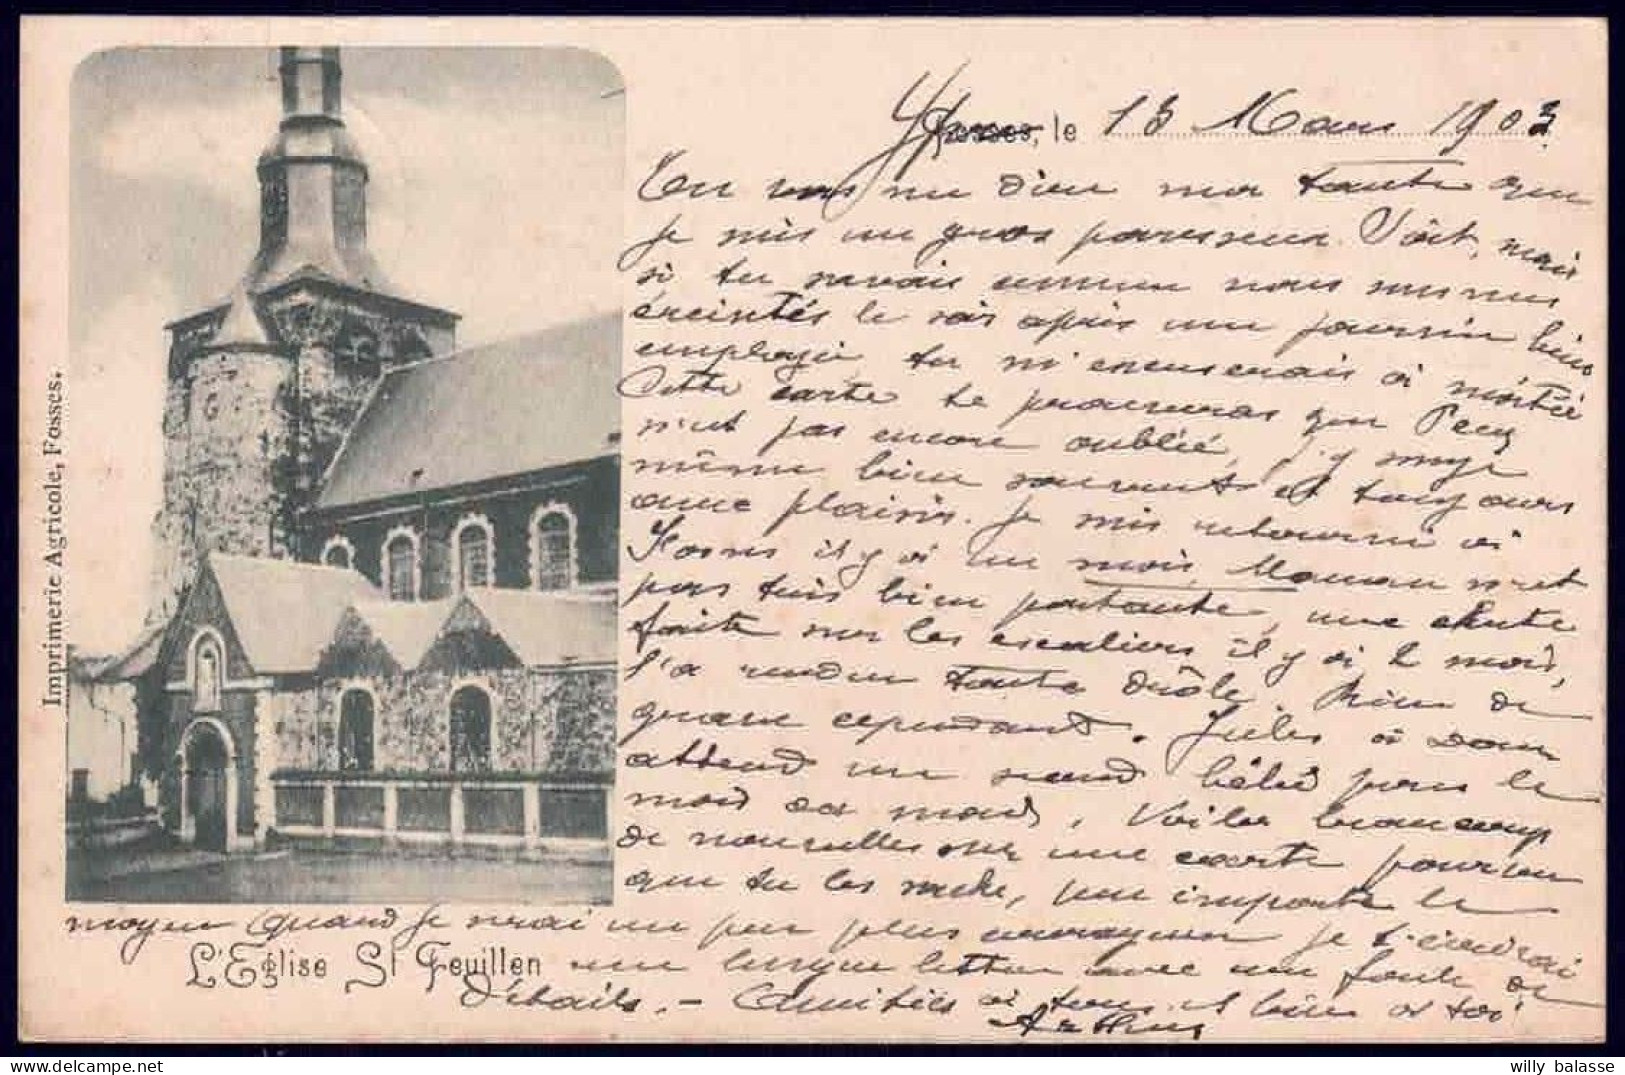 Fosses, le 13 Mars 1903
Tu vas me dire ma tante que
je suis un gros paresseux. Soit, mais
si tu savais comme nous sommes
éreintés le soir après une journée bien
employée tu m'excuserais à moitié
Cette carte te prouvera que
n'est pas encore oublié, j'y songe
même bien souvent et toujours
avec plaisir. Je suis retourné à
Fosses il y a un mois, Maman n'est
pas très bien portante, une chute
faite sur les escaliers il y a 2 mois,
l'a rendue toute drôle. Rien de
grave cependant. Jules à
attend un second bébé pour le
mois de mars. Voilà beaucoup
de nouvelles sur une carte pourvu
que tu les saches, peu importe le
moyen Quand je serai un peu plus courageux je t'écrirai
une longue lettre avec une foule de
détails. - Amitiés à tous et bien à toi
Arthur
L'Eglise St Feuillen
Imprimerie Agricole, Fosses.
willy balasse